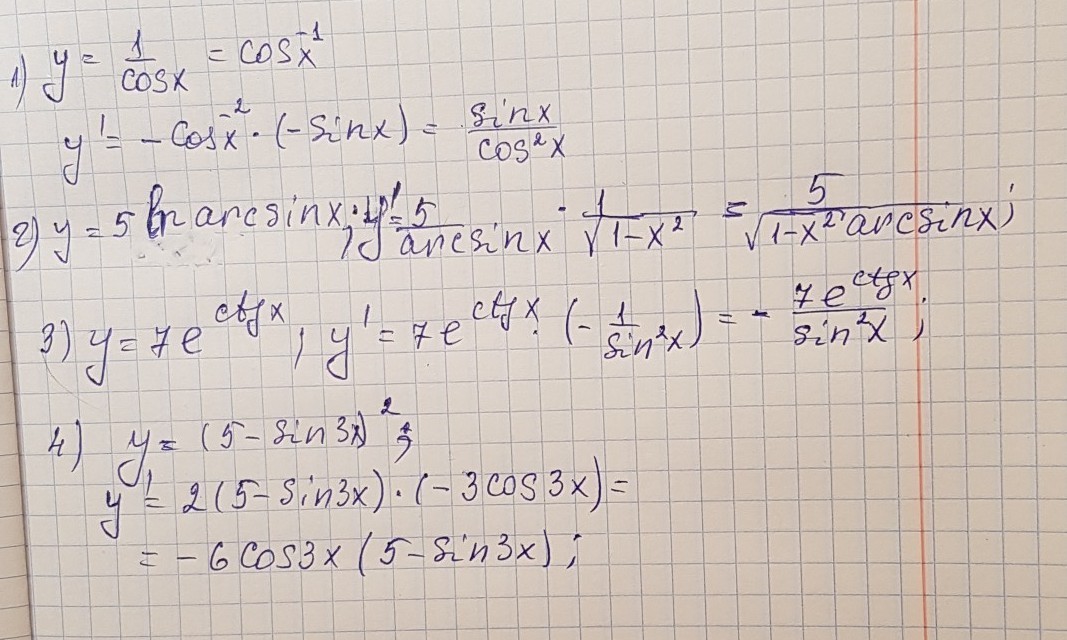 1) y = 1/cosx = cos⁻¹x
y' = -cos⁻²x · (-sinx) = sinx/cos²x
2) y = 5 ln arcsinx; y' = 5/arcsinx · 1/√(1-x²) = 5/(√(1-x²) arcsinx);
3) y = 7e^(ctgx); y' = 7e^(ctgx) · (-1/sin²x) = -7e^(ctgx)/sin²x;
4) y = (5-sin3x)²;
y' = 2(5-sin3x)·(-3cos3x) =
= -6cos3x(5-sin3x);